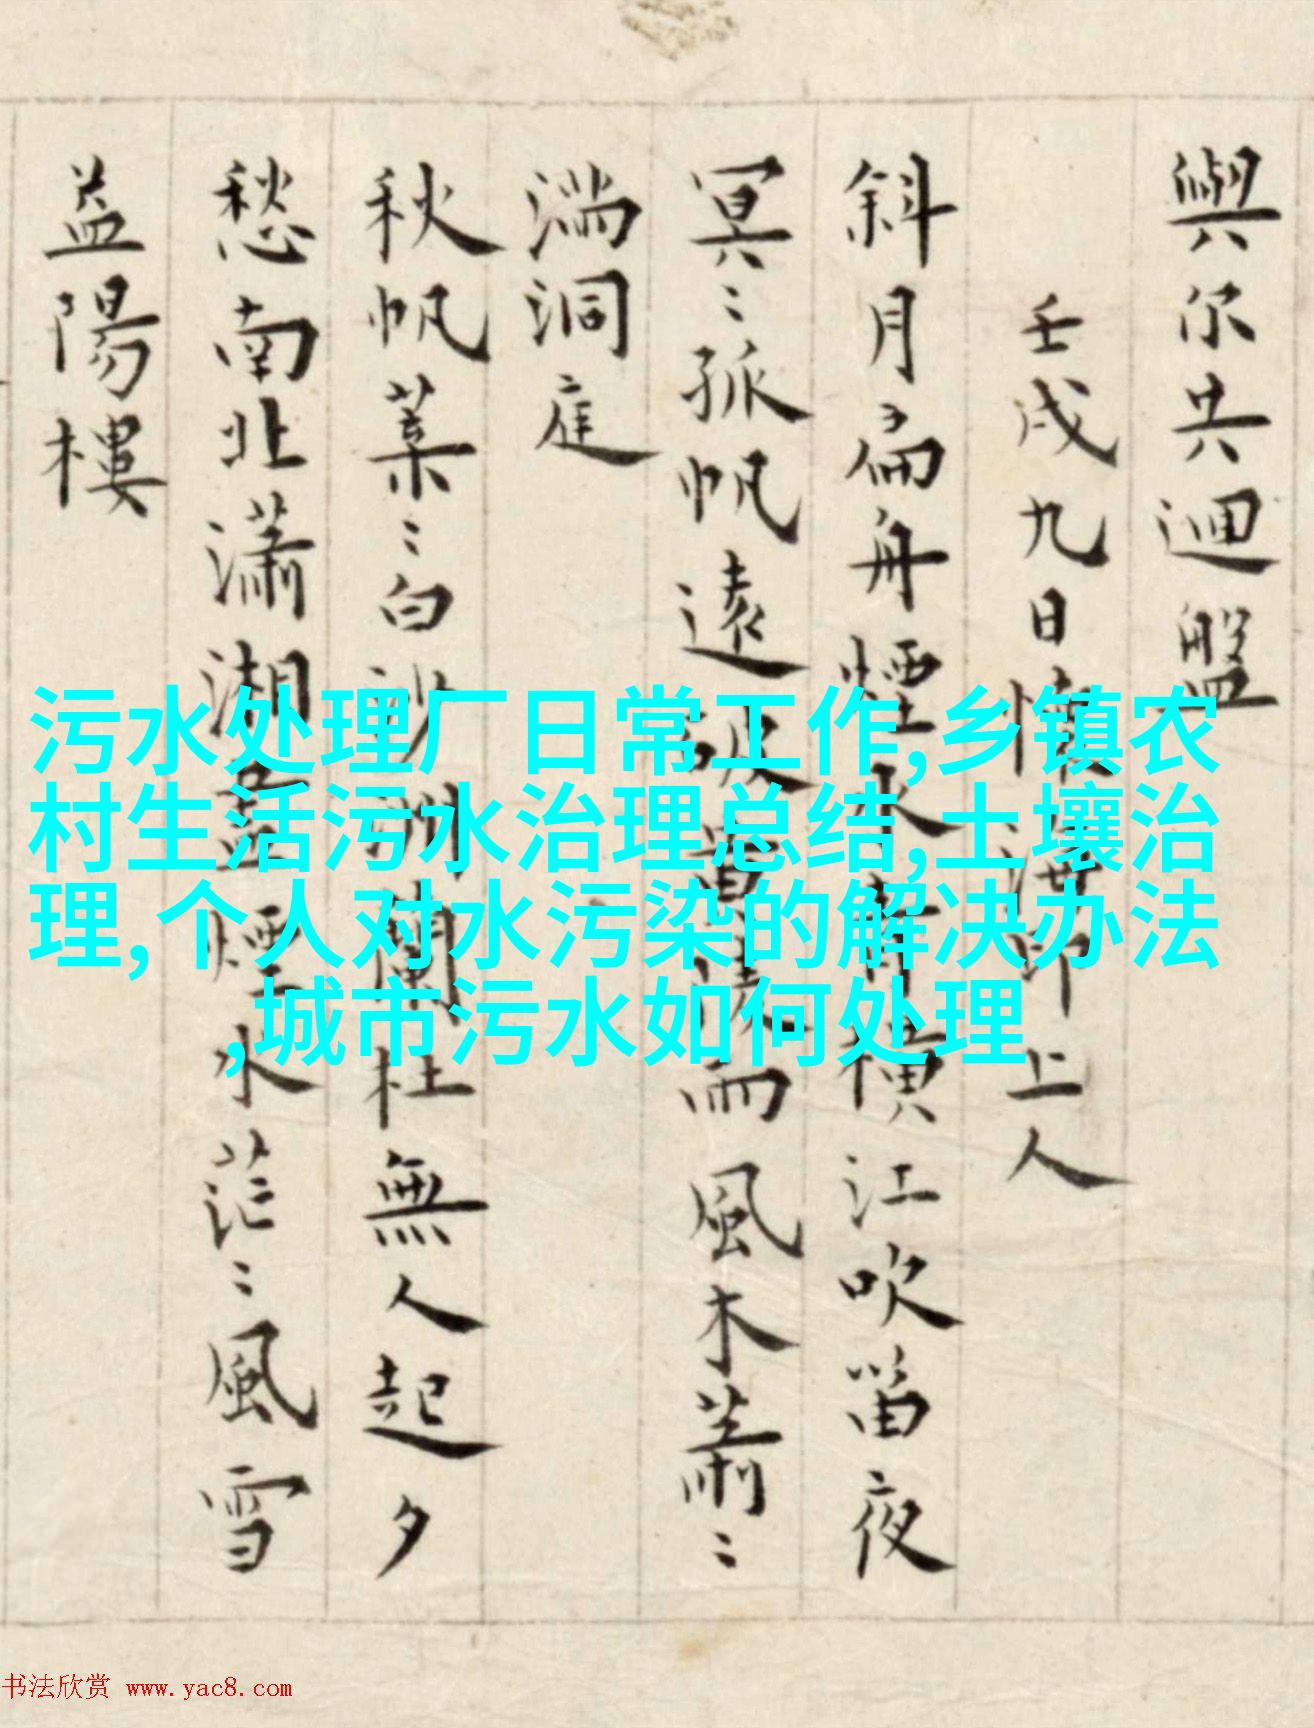 與尔共迴盤
壬戌九日懷滿師上人
斜月扁舟煙水青橫江吹笛夜
冥〻孤帆遠破黃陵雨風木蕭〻
滿洞庭
秋帆葉〻白沙洲蘭杜無人起夕
愁南北瀟湘盡煙水茫〻風雪
益陽樓
污水处理厂日常工作,乡镇农
村生活污水治理总结,土壤治
理,个人对水污染的解决办法
,城市污水如何处理
书法欣赏 www.yac8.com